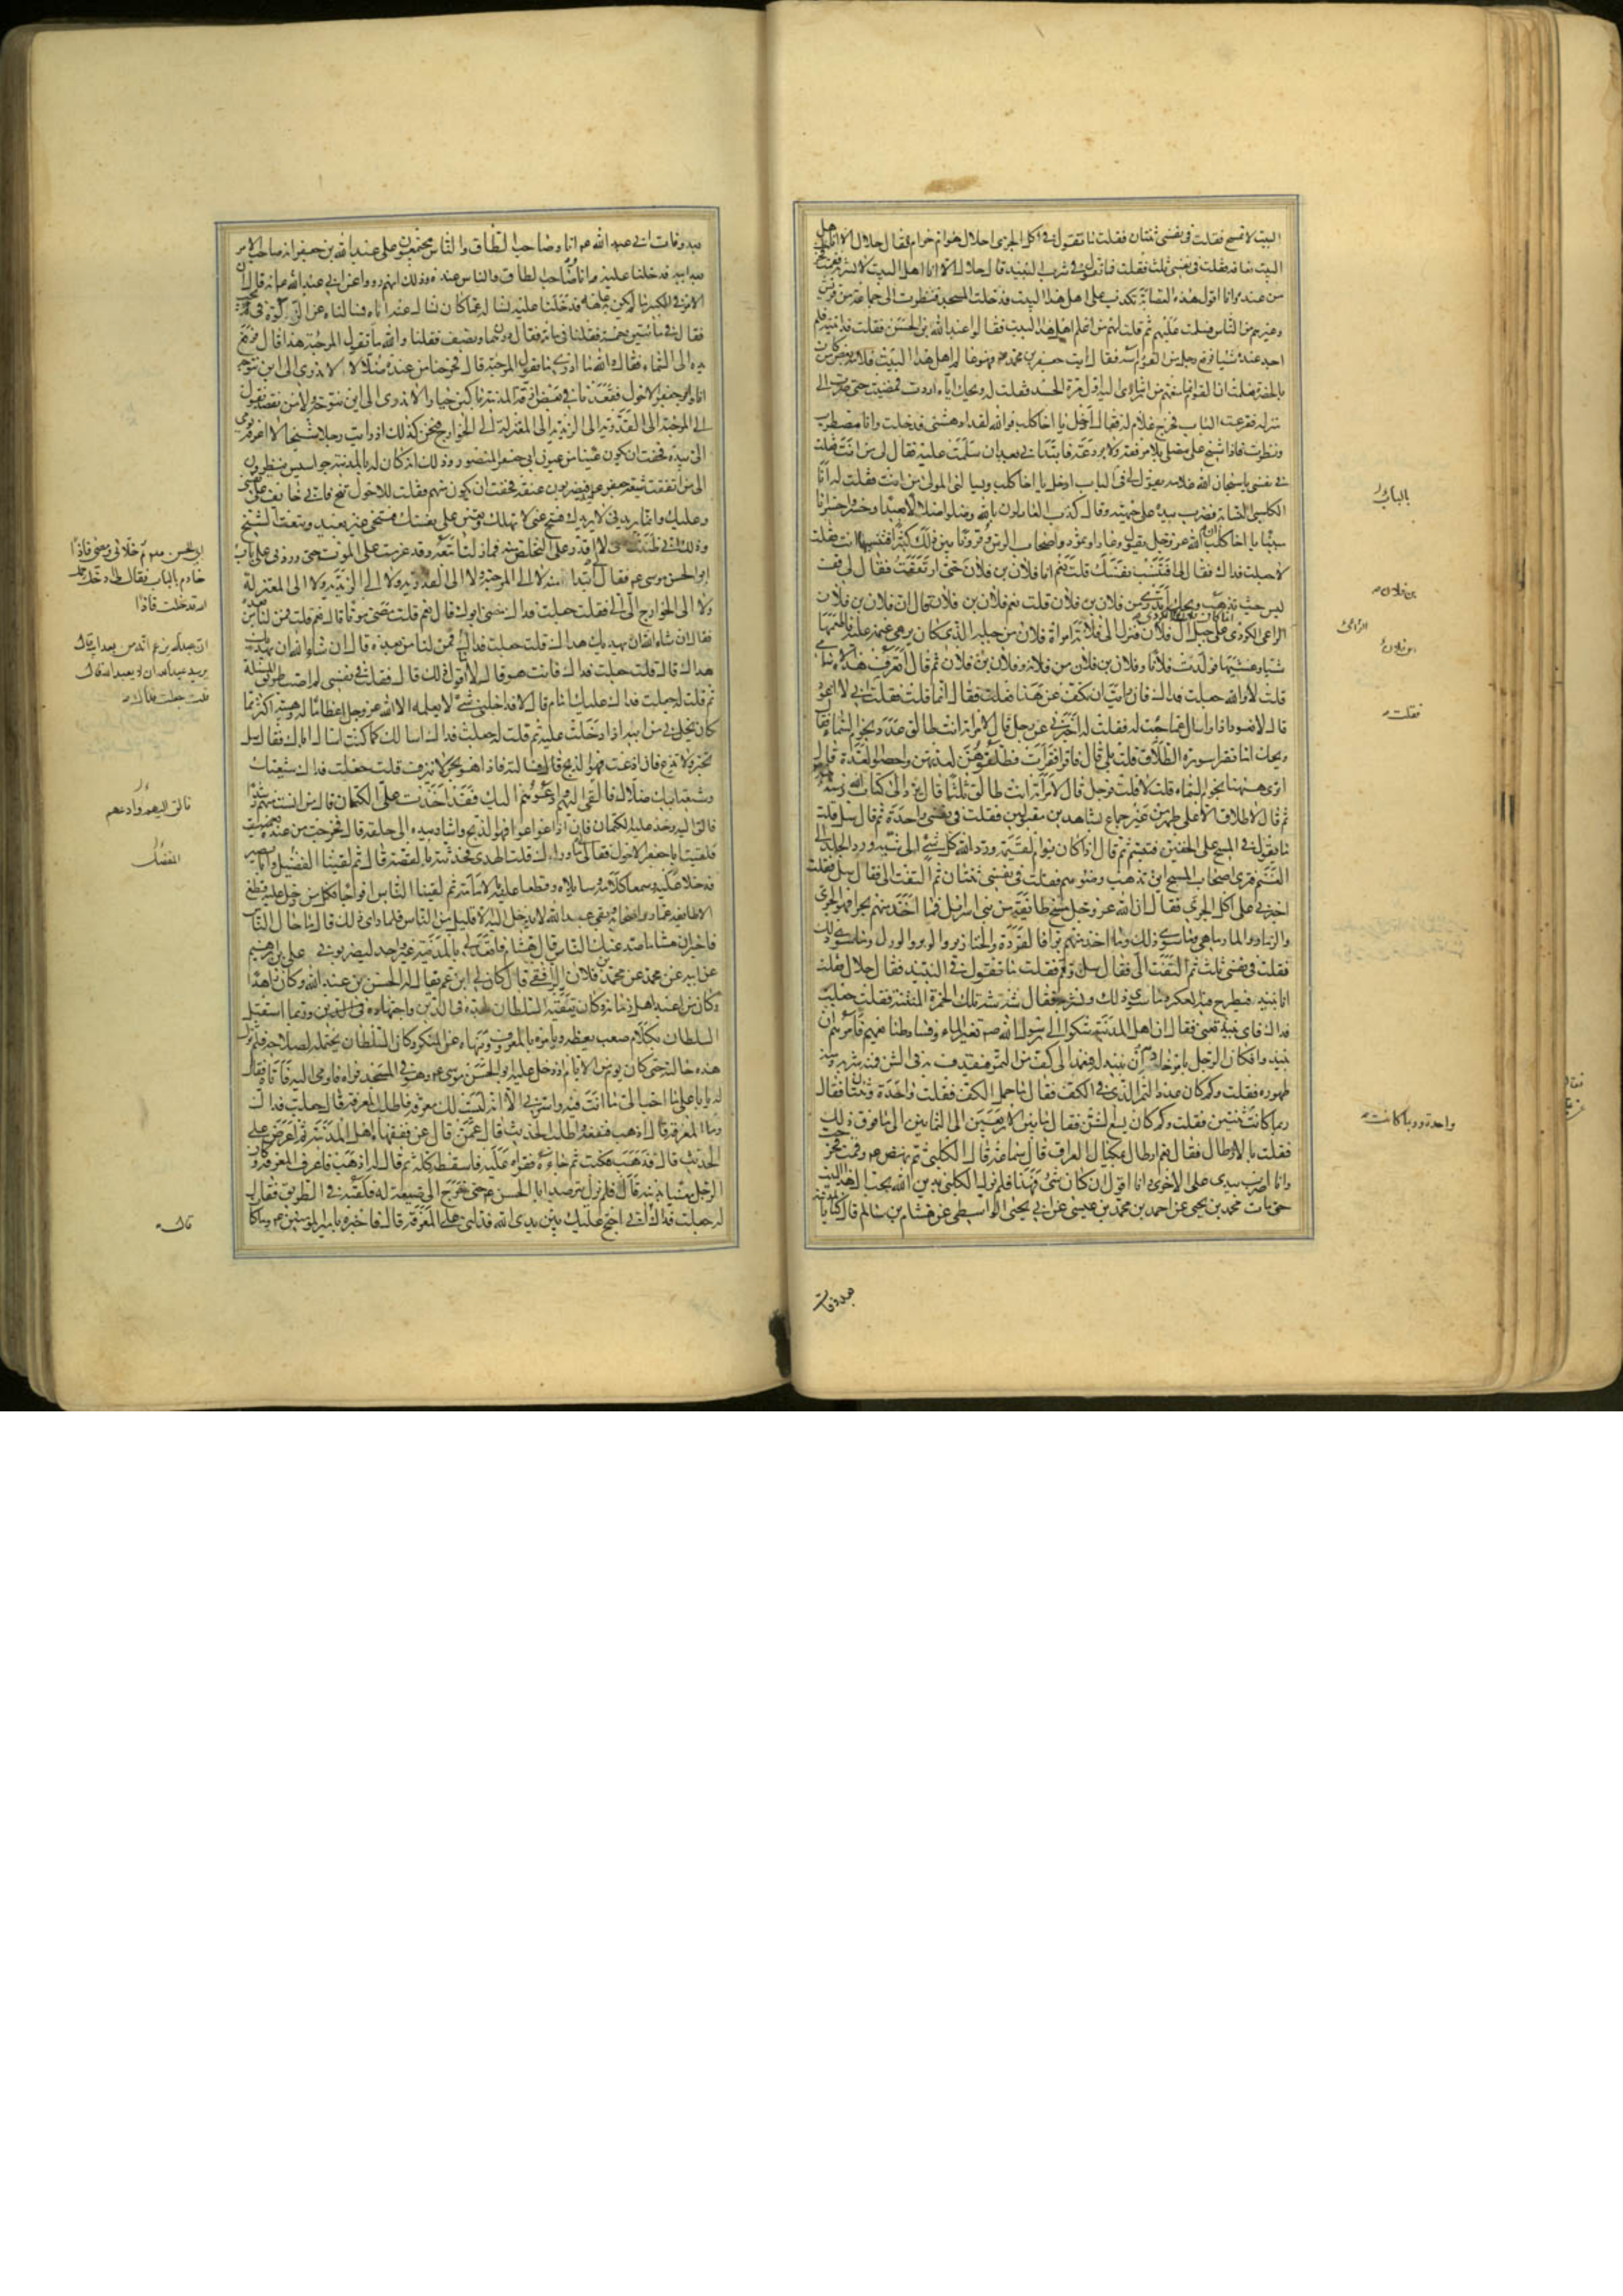 البيت لا نمسح فقلت في نفسي ثنتان فقلت ما تقول في اكل الجري احلال هو ام حرام فقال حلال الا انا اهل
البيت نعافه فقلت في نفسي ثلث فقلت فما تقول في شرب النبيذ قال حلال الا انا اهل البيت لا نشربه فقمت فخرجت
من عنده وانا اقول هذه العصابة تكذب على اهل هذا البيت فدخلت المسجد فنظرت الى جماعة من قريش
وغيرهم من الناس فسلمت عليهم ثم قلت لهم من اعلم اهل هذا البيت فقالوا عبد الله بن الحسن فقلت قد اتيته فلم
اجد عنده شيئا فرفع رجل من القوم راسه فقال ايت جعفر بن محمد ع فهو عالم اهل هذا البيت فلامه بعض من كان
بالحضرة فقلت ان القوم انما منعهم من ارشادي اليه اول مرة الحسد فقلت له ويحك اياه اردت فمضيت حتى صرت الى
منزله فقرعت الباب فخرج غلام له فقال ادخل يا اخا كلب فوالله لقد ادهشني فدخلت وانا مضطرب
ونظرت فاذا شيخ على مصلى بلا مرفقة ولا بردعة فابتداني بعد ان سلمت عليه فقال لي من انت فقلت
في نفسي يا سبحان الله غلامه يقول لي في الباب ادخل يا اخا كلب ويسالني المولى من انت فقلت له انا
الكلبي النسابة فضرب بيده على جبهته وقال كذب العادلون بالله وضلوا ضلالا بعيدا وخسروا خسرانا
مبينا يا اخا كلب ان الله عز وجل يقول وعادا وثمود واصحاب الرس وقرونا بين ذلك كثيرا افتنسبها انت فقلت
لا جعلت فداك فقال لي افتنسب نفسك قلت نعم انا فلان بن فلان بن فلان حتى ارتفعت فقال لي قف
ليس حيث تذهب ويحك اتدري من فلان بن فلان قلت نعم فلان بن فلان قال ان فلان بن فلان
الراعي الكردي على جبل ال فلان فنزل الى فلانة امراة فلان من جبله الذي كان يرعى غنمه عليه فاطعمها
شيئا وغشيها فولدت فلانا وفلان بن فلان من فلانة وفلان بن فلان ثم قال اتعرف هذه الاسامي
قلت لا والله جعلت فداك فان رايت ان تكف عن هذا فعلت فقال انما قلت فقلت اني لا اعود
قال لا نعود اذا واسال عما جئت له فقلت له اخبرني عن رجل قال لامراته انت طالق عدد نجوم السماء فقال
ويحك اما تقرا سورة الطلاق قلت بلى قال فاقرا فقرات فطلقوهن لعدتهن واحصوا العدة قال
اترى ههنا نجوم السماء قلت لا قلت فرجل قال لامراته انت طالق ثلثا قال ترد الى كتاب الله وسنة نبيه
ثم قال لا طلاق الا على طهر من غير جماع بشاهدين مقبولين فقلت في نفسي واحدة ثم قال سل قلت
ما تقول في المسح على الخفين فتبسم ثم قال اذا كان يوم القيمة ورد الله كل شيء الى شيئه ورد الجلد الى
الغنم فترى اصحاب المسح اين يذهب وضوءهم فقلت في نفسي ثنتان ثم التفت الي فقال سل فقلت
اخبرني عن اكل الجري فقال ان الله عز وجل مسخ طائفة من بني اسرائيل فما اخذ منهم بحرا فهو الجري
والزمار والمارماهي وما سوى ذلك وما اخذ منهم برا فالقردة والخنازير والوبر والورل وما سوى ذلك
فقلت في نفسي ثلث ثم التفت الي فقال سل وقم فقلت ما تقول في النبيذ فقال حلال فقلت
انا ننبذ فنطرح فيه العكر وما سوى ذلك ونشربه فقال شه شه تلك الخمرة المنتنة فقلت جعلت
فداك فاي نبيذ تعني فقال ان اهل المدينة شكوا الى رسول الله ص تغير الماء وفساد طبائعهم فامرهم ان
ينبذوا فكان الرجل يامر خادمه ان ينبذ له فيعمد الى كف من التمر فيقذف به في الشن فمنه شربه ومنه
طهوره فقلت وكم كان عدد التمر الذي في الكف فقال ما حمل الكف فقلت واحدة وثنتان فقال
ربما كانت ثنتين فقلت وكم كان يسع الشن فقال ما بين الاربعين الى الثمانين الى ما فوق ذلك
فقلت بالارطال فقال نعم ارطال بمكيال العراق قال سماعة قال الكلبي ثم نهض ع وقمت فخرجت
وانا اضرب بيدي على الاخرى وانا اقول ان كان شيء فهذا فلم يزل الكلبي يدين الله بحب ال هذا البيت
حتى مات محمد بن يحيى عن احمد بن محمد بن عيسى عن ابي يحيى الواسطي عن هشام بن سالم قال كنا بالمدينة
بالباب
بن فلان
الراعي
بن فلان
فقلت
واحدة وربما كانت
بعد وفات
بعد وفات ابي عبد الله ع انا وصاحب الطاق والناس مجتمعون على عبد الله بن جعفر انه صاحب الامر
بعد ابيه فدخلنا عليه انا وصاحب الطاق والناس عنده وذلك انهم رووا عن ابي عبد الله ع انه قال ان
الامر في الكبير ما لم تكن به عاهة فدخلنا عليه نساله عما كنا نسال عنه اباه فسالناه عن الزكوة في كم تجب
فقال في مائتين خمسة فقلنا ففي مائة فقال درهمان ونصف فقلنا والله ما تقول المرجئة هذا قال فرفع
يده الى السماء فقال والله ما ادري ما تقول المرجئة قال فخرجنا من عنده ضلالا لا ندري الى اين نتوجه
انا وابو جعفر الاحول فقعدنا في بعض ازقة المدينة باكين حيارى لا ندري الى اين نتوجه ولا من نقصد نقول
الى المرجئة الى القدرية الى الزيدية الى المعتزلة الى الخوارج فنحن كذلك اذ رايت رجلا شيخا لا اعرفه يومي
الي بيده فخفت ان يكون عينا من عيون ابي جعفر المنصور وذلك انه كان له بالمدينة جواسيس ينظرون
الى من اتفقت شيعة جعفر ع عليه فيضربون عنقه فخفت ان يكون منهم فقلت للاحول تنح فاني خائف على نفسي
وعليك وانما يريدني لا يريدك فتنح عني لا تهلك وتعين على نفسك فتنحى غير بعيد وتبعت الشيخ
وذلك اني ظننت اني لا اقدر على التخلص منه فما زلت اتبعه وقد عزمت على الموت حتى ورد بي على باب
ابو الحسن موسى ع فقال لي ابتداء منه لا الى المرجئة ولا الى القدرية ولا الى الزيدية ولا الى المعتزلة
ولا الى الخوارج الي الي فقلت جعلت فداك مضى ابوك قال نعم قلت مضى موتا قال نعم قلت فمن لنا من بعده
فقال ان شاء الله ان يهديك هداك قلت جعلت فداك فمن لنا من بعده قال ان شاء الله ان يهديك
هداك قال قلت جعلت فداك فانت هو قال لا ما اقول ذلك قال فقلت في نفسي لم اصب طريق المسئلة
ثم قلت له جعلت فداك عليك امام قال لا فداخلني شيء لا يعلمه الا الله عز وجل اعظاما له وهيبة اكثر مما
كان يحل بي من ابيه اذا دخلت عليه ثم قلت له جعلت فداك اسالك كما كنت اسال اباك فقال سل
تخبر ولا تذع فان اذعت فهو الذبح قال فسالته فاذا هو بحر لا ينزف قلت جعلت فداك شيعتك
وشيعة ابيك ضلال فالقي اليهم وادعوهم اليك فقد اخذت علي الكتمان قال من انست منهم رشدا
فالق اليه وخذ عليه الكتمان فان اذاعوا فهو الذبح واشار بيده الى حلقه قال فخرجت من عنده
فلقيت ابا جعفر الاحول فقال لي ما وراءك قلت الهدى فحدثته بالقصة قال ثم لقينا الفضيل وابا بصير
فدخلا عليه وسمعا كلامه وساءلاه وقطعا عليه بالامامة ثم لقينا الناس افواجا فكل من دخل عليه قطع
الا طائفة عمار واصحابه وبقي عبد الله لا يدخل اليه الا قليل من الناس فلما راى ذلك قال ما حال الناس
فاخبر ان هشاما صد عنك الناس قال هشام فاقعد لي بالمدينة غير واحد ليضربوني علي بن ابرهيم
عن ابيه عن محمد عن محمد بن فلان الرافقي قال كان لي ابن عم يقال له الحسن بن عبد الله وكان زاهدا
وكان من اعبد اهل زمانه وكان يتقيه السلطان لجده في الدين واجتهاده في الدين وربما استقبل
السلطان بكلام صعب يعظه ويامره بالمعروف وينهاه عن المنكر وكان السلطان يحتمله لصلاحه فلم تزل
هذه حالته حتى كان يوم من الايام اذ دخل عليه ابو الحسن موسى ع وهو في المسجد فراه فاومى اليه فاتاه فقال
له يا با علي ما احب الي ما انت فيه واسرني الا انه ليست لك معرفة فاطلب المعرفة قال جعلت فداك
وما المعرفة قال اذهب فتفقه واطلب الحديث قال عمن قال عن فقهاء اهل المدينة ثم اعرض علي
الحديث قال فذهب فكتب ثم جاءه فقراه عليه فاسقطه كله ثم قال له اذهب فاعرف المعرفة وكان
الرجل معنيا بدينه قال فلم يزل يترصد ابا الحسن ع حتى خرج الى ضيعة له فلقيه في الطريق فقال
له جعلت فداك اني احتج عليك بين يدي الله فدلني على المعرفة قال فاخبره بامير المؤمنين ع وما كان
ابي الحسن ع ثم خلاني ومضى فاذا
خادم بالباب فقال لي ادخل رحمك
الله فدخلت فاذا
ان عبد الله يزعم انه من بعد ابيه قال
يريد عبد الله ان لا يعبد الله قال
قلت جعلت فداك
فالق اليهم وادعهم
المفضل
قال